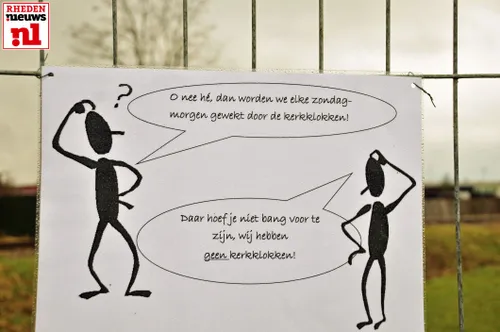 RHEDEN
nieuws
.nl
?
O nee hé, dan worden we elke zondag-
morgen gewekt door de kerkklokken!
Daar hoef je niet bang voor te
zijn, wij hebben
geen kerkklokken!